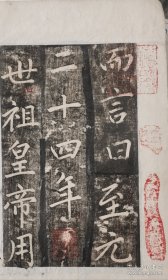 而言曰至元
二十四年
世祖皇帝用